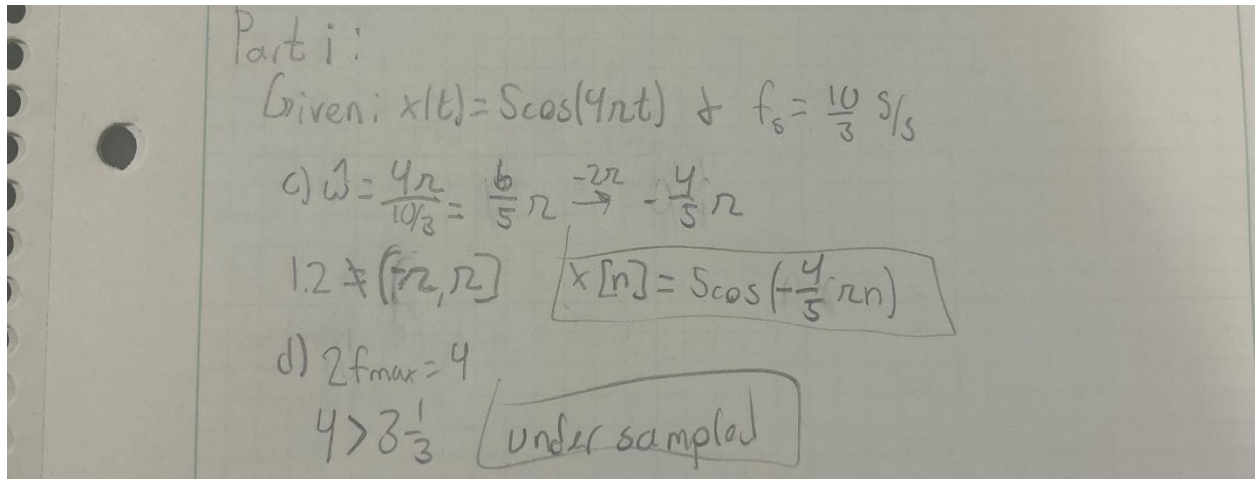 Part i:
Given: x(t)=5cos(4πt) & fs = 10/3 S/s
c) ω̂ = 4π/(10/3) = 6/5 π -2π→ -4/5 π
1.2 ≠ (-π, π] x[n] = 5cos(-4/5 πn)
d) 2fmax = 4
4 > 3 1/3 under sampled